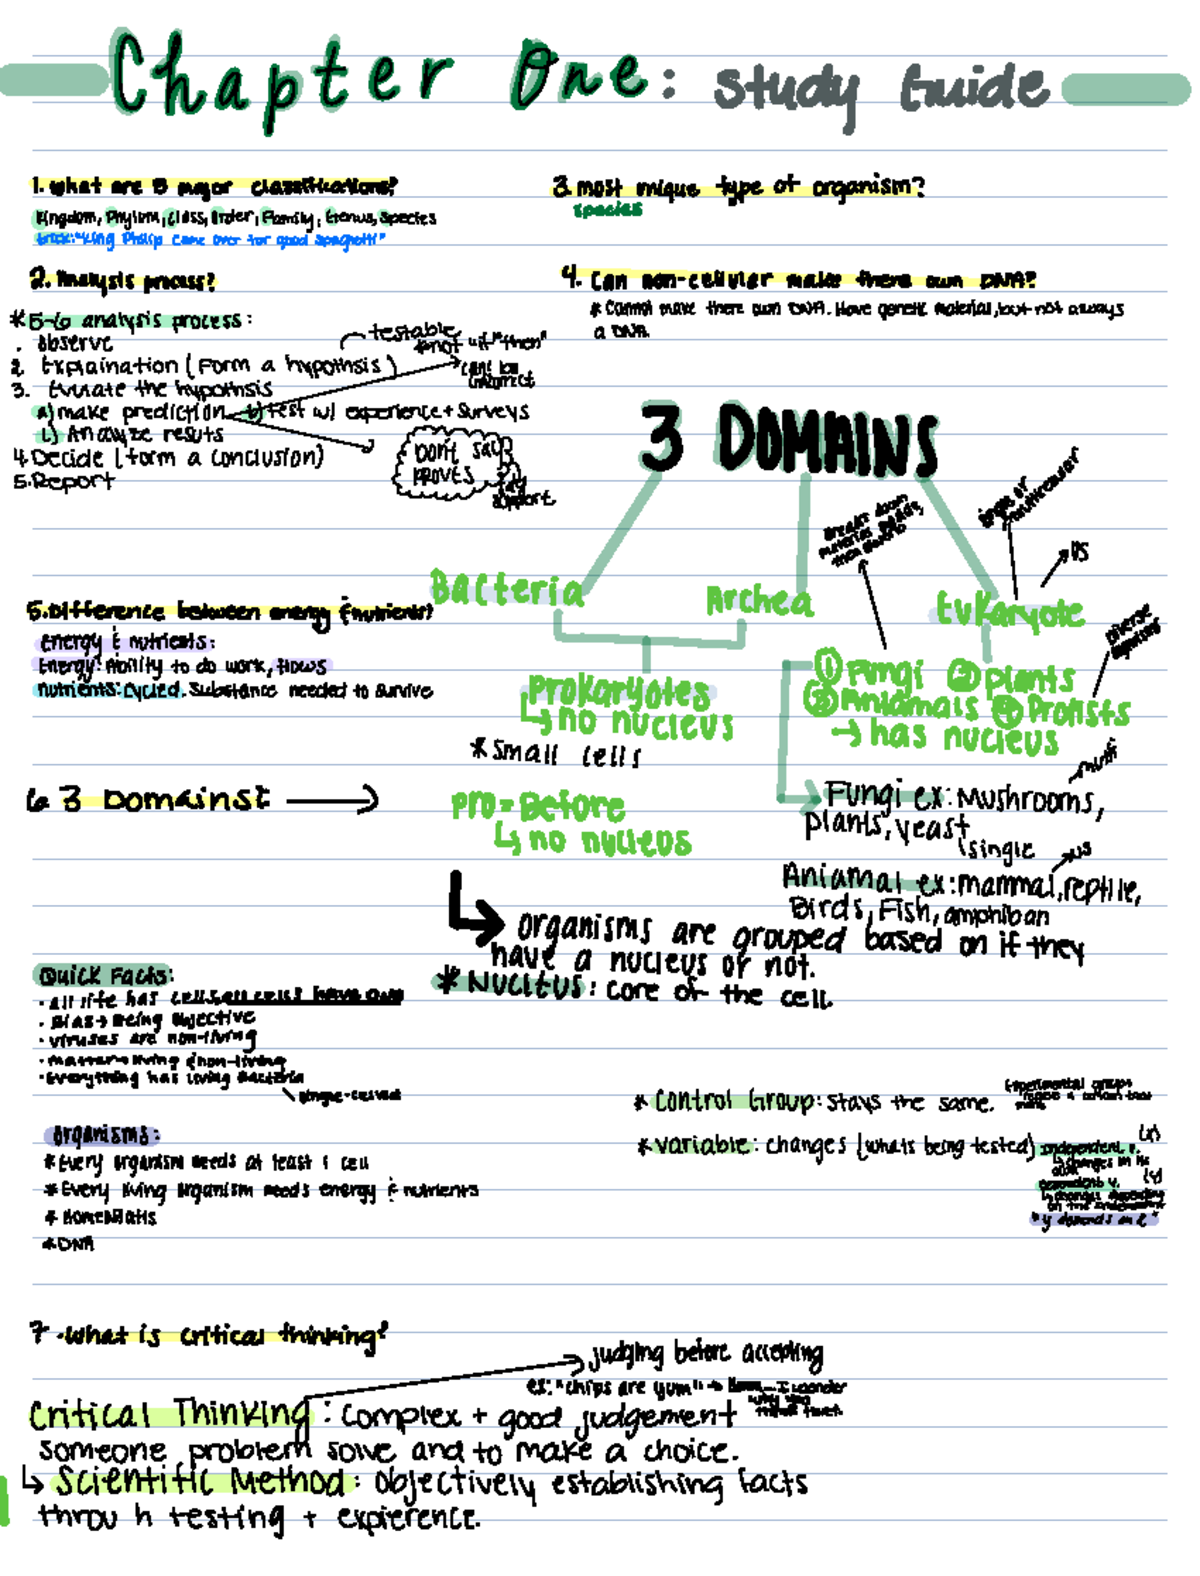 Chapter One: Study Guide
1. What are 8 major classifications?
Kingdom, Phylum, Class, Order, Family, Genus, Species
trick: "King Philip came over for good spaghetti"
2. Analysis process?
* 5-6 analysis process:
. Observe
2. Explaination (Form a hypothsis)
testable
* not "if" "then"
can't be incorrect
3. Evuate the hypothsis
a) make prediction b) Test w/ experience + surveys
c) Analyze resuts
4. Decide (form a conclusion)
5. Report
Don't say
proves
say
support
3. most unique type of organism?
species
4. Can non-cellular make there own DNA?
* Cannot make there own DNA. Have genetic material, but not always
a DNA.
3 DOMAINS
Breaks down
single or
multicellular
us
Bacteria
Archea
Eukaryote
Diverse
5. Difference between energy & nutrients?
Energy & nutrients:
Energy: Ability to do work, flows
nutrients: cycled. Substance needed to survive
Prokaryotes
↳ no nucleus
* Small cells
① Fungi ② plants
③ Aniamals ④ Protists
→ has nucleus
6. 3 Domains? →
pro = Before
↳ no nucleus
multi
Fungi ex: Mushrooms,
plants, yeast
single
us
Aniamal ex: mammal, reptile,
Birds, Fish, amphiban
↳ organisms are grouped based on if they
have a nucleus or not.
* Nucleus: core of the cell
Quick Facts:
· all life has cells, all cells have DNA
· Bias → Being objective
· viruses are non-living
· matter → living & non-living
· Everything has living Bacteria
single-celled
* Control Group: stays the same.
Experimental groups
* variable: changes (whats being tested)
independent v. (x)
↳ changes in the
dependent v. (y)
↳ changes depending
on the independent
"y depends on x"
organisms:
* Every organism needs at least 1 cell
* Every living organism needs energy & nutrients
* DNA
7. What is critical thinking?
judging before accepting
ex: "chips are yum" → Hmm... I wonder
why they
Critical Thinking: Complex + good judgement
someone problem solve and to make a choice.
↳ Scientific Method: objectively establishing facts
throu h testing + expierence.